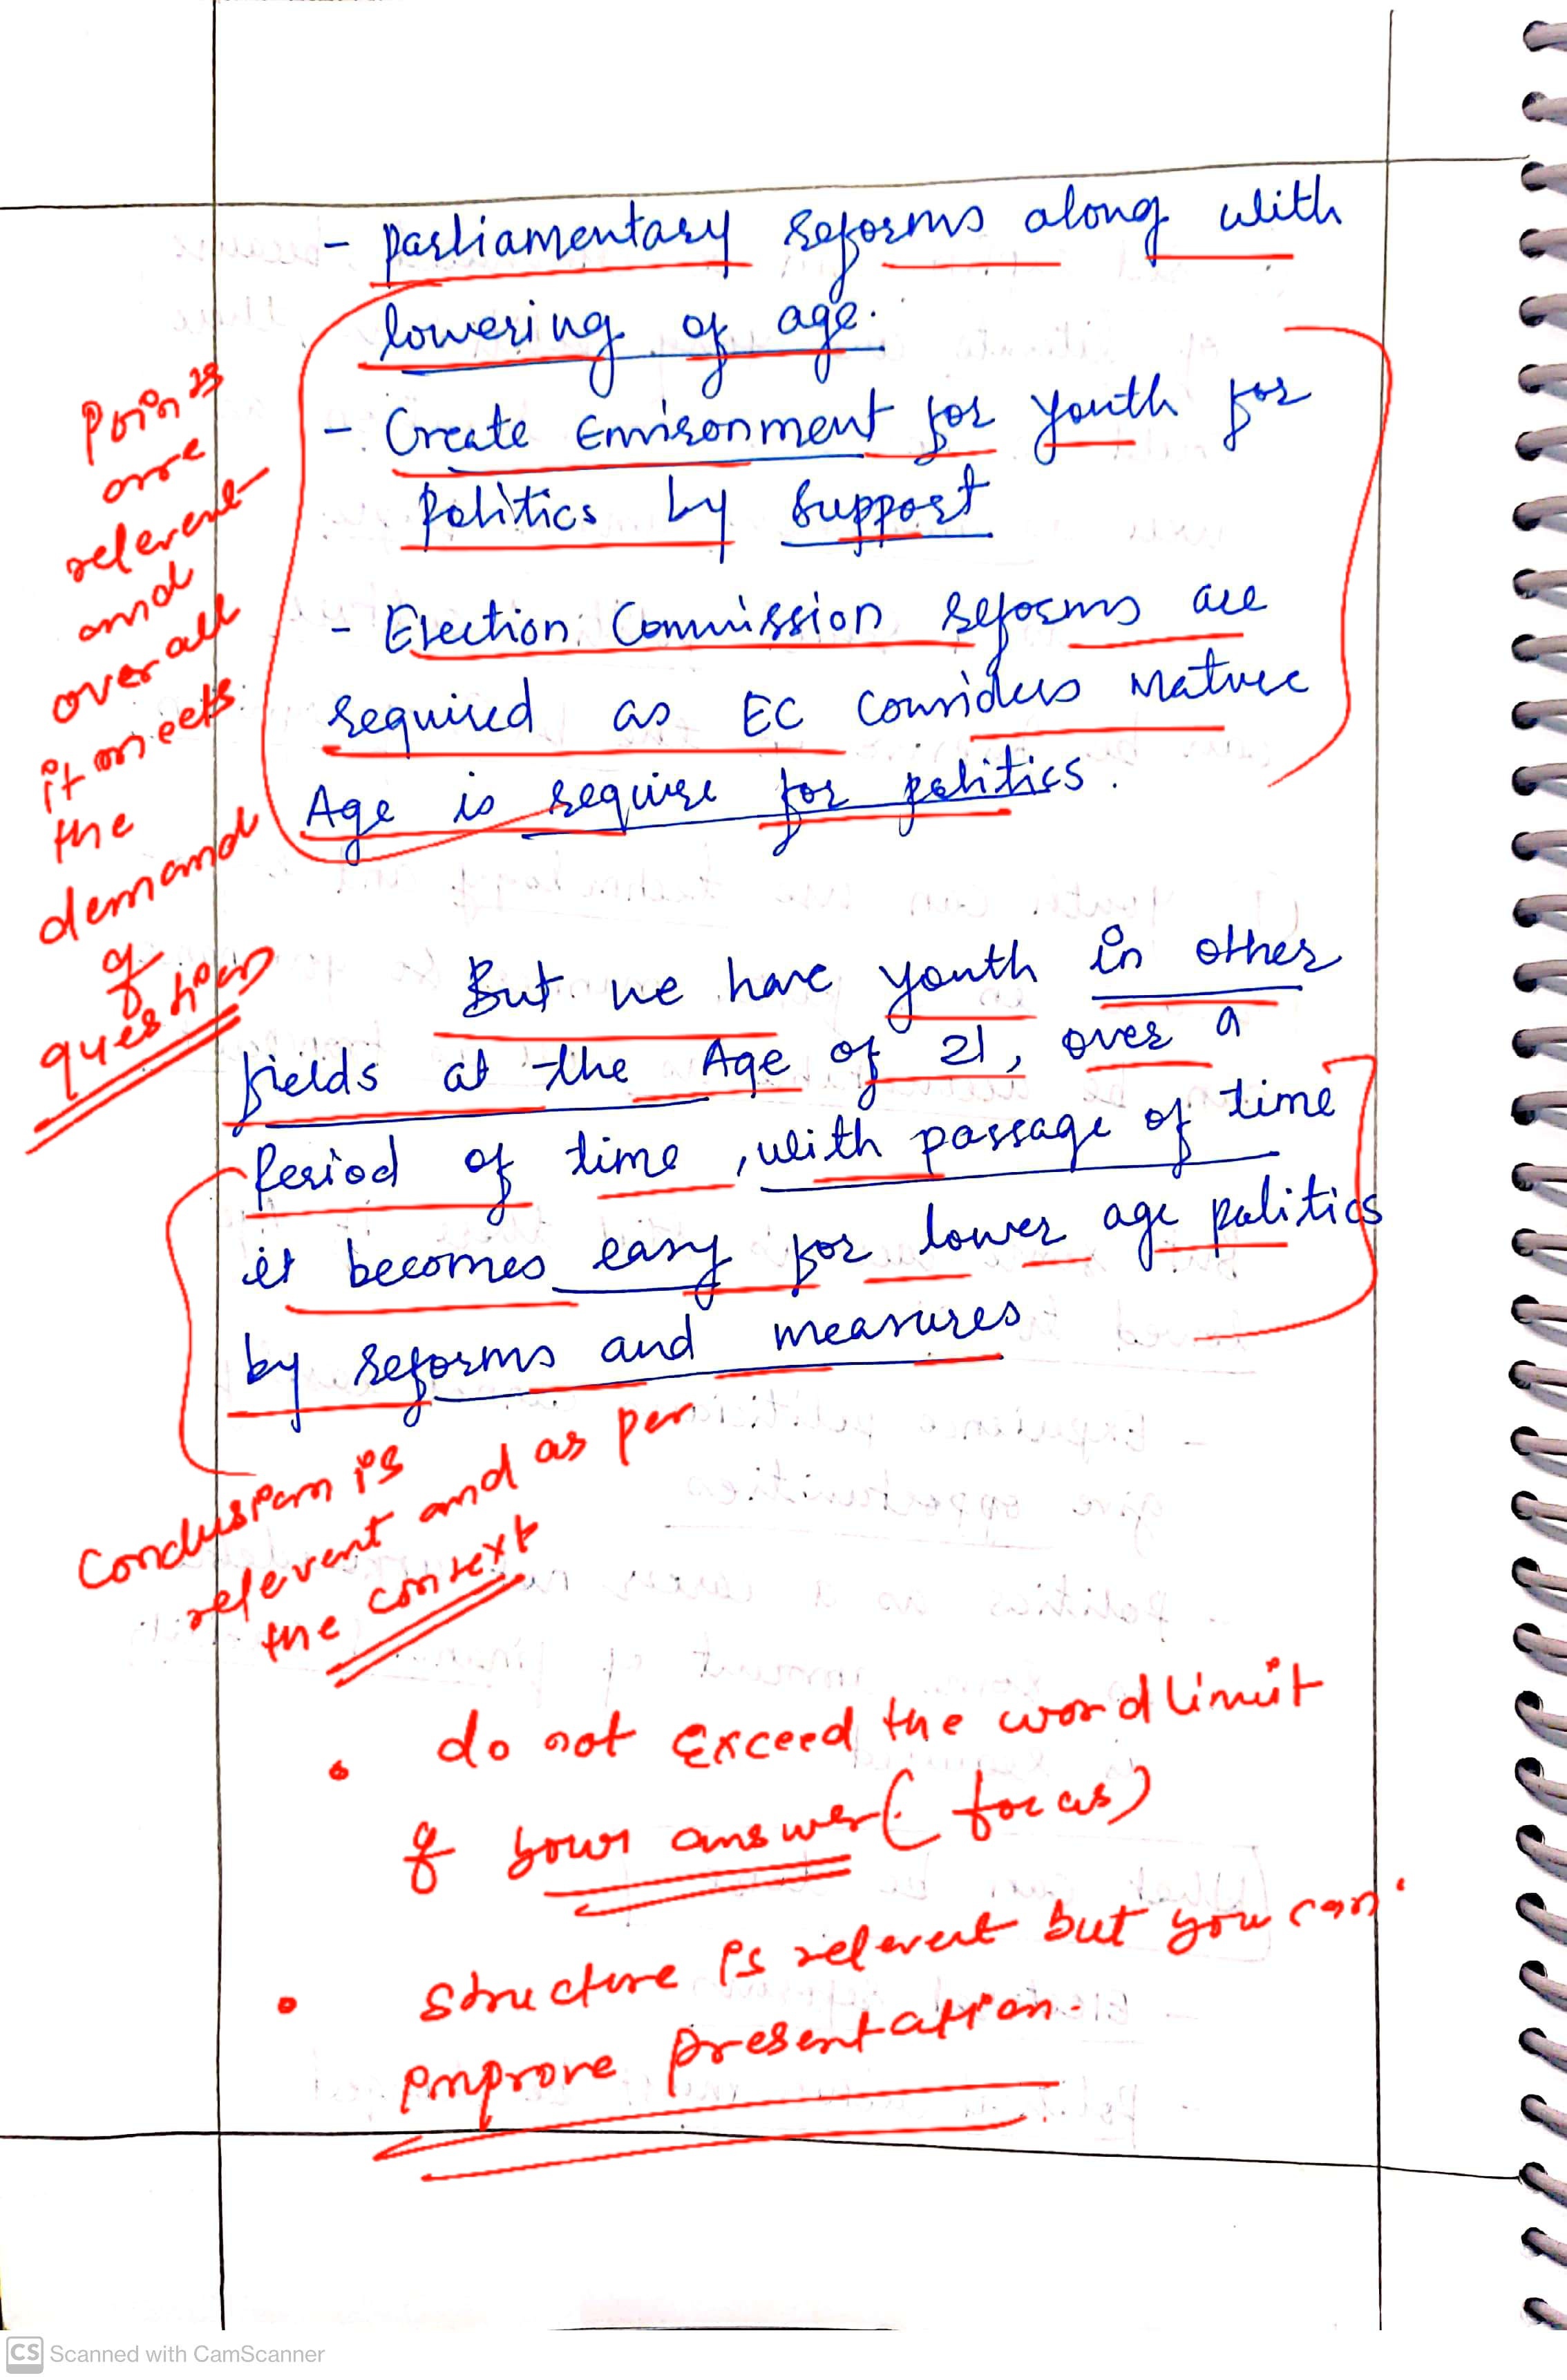 - Parliamentary reforms along with
lowering of age.
- Create Environment for youth for
Politics by support
- Election Commission reforms are
required as EC Considers Mature
Age is require for politics.
Points
are
relevent
and
overall
it meets
the
demand
of
question
But we have youth in other
fields at the Age of 21, over a
Period of time, with passage of time
it becomes easy for lower age politics
by reforms and measures
Conclusion is
relevent and as per
the context
• do not exceed the word limit
of your answer (focus)
• structure is relevent but you can
improve presentation.
CS Scanned with CamScanner